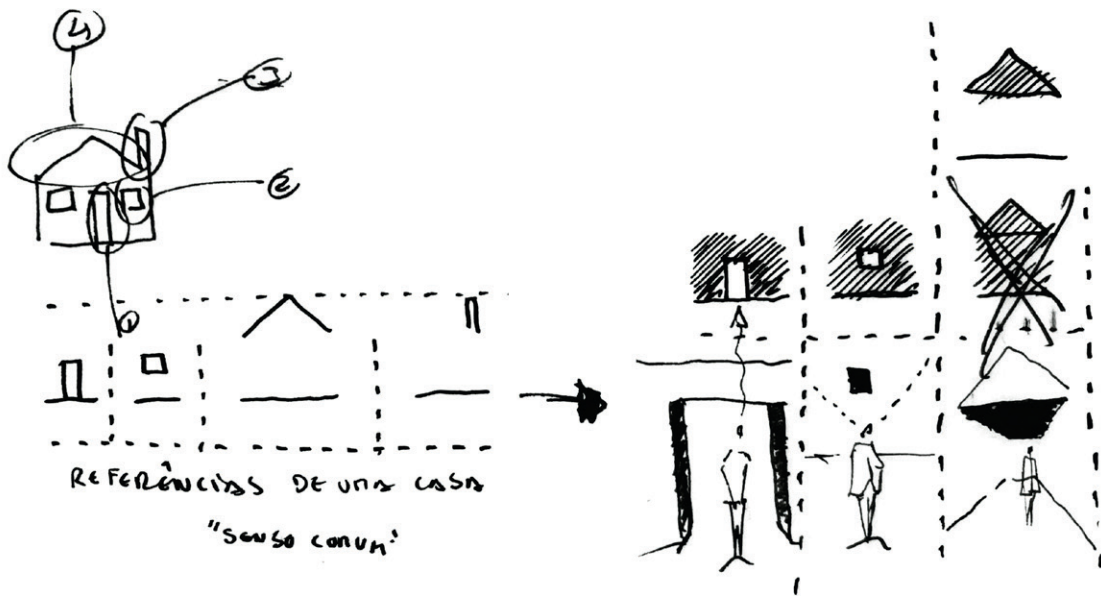 4
3
2
1
REFERÊNCIAS DE UMA CASA
"SENSO COMUM"